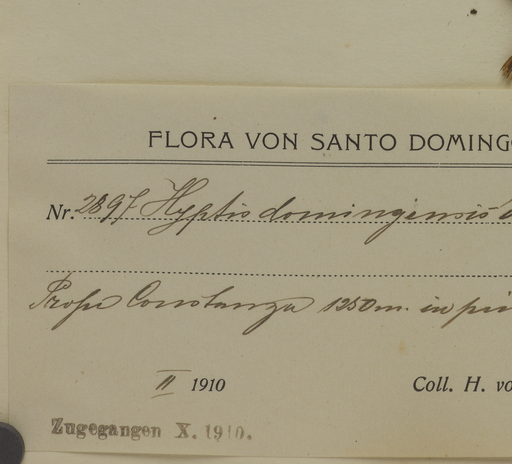 FLORA VON SANTO DOMINGO
Nr. 2897 Hyptis domingensis
Prope Constanza 1250 m. in pi
II 1910
Coll. H. vo
Zugegangen X. 1910.